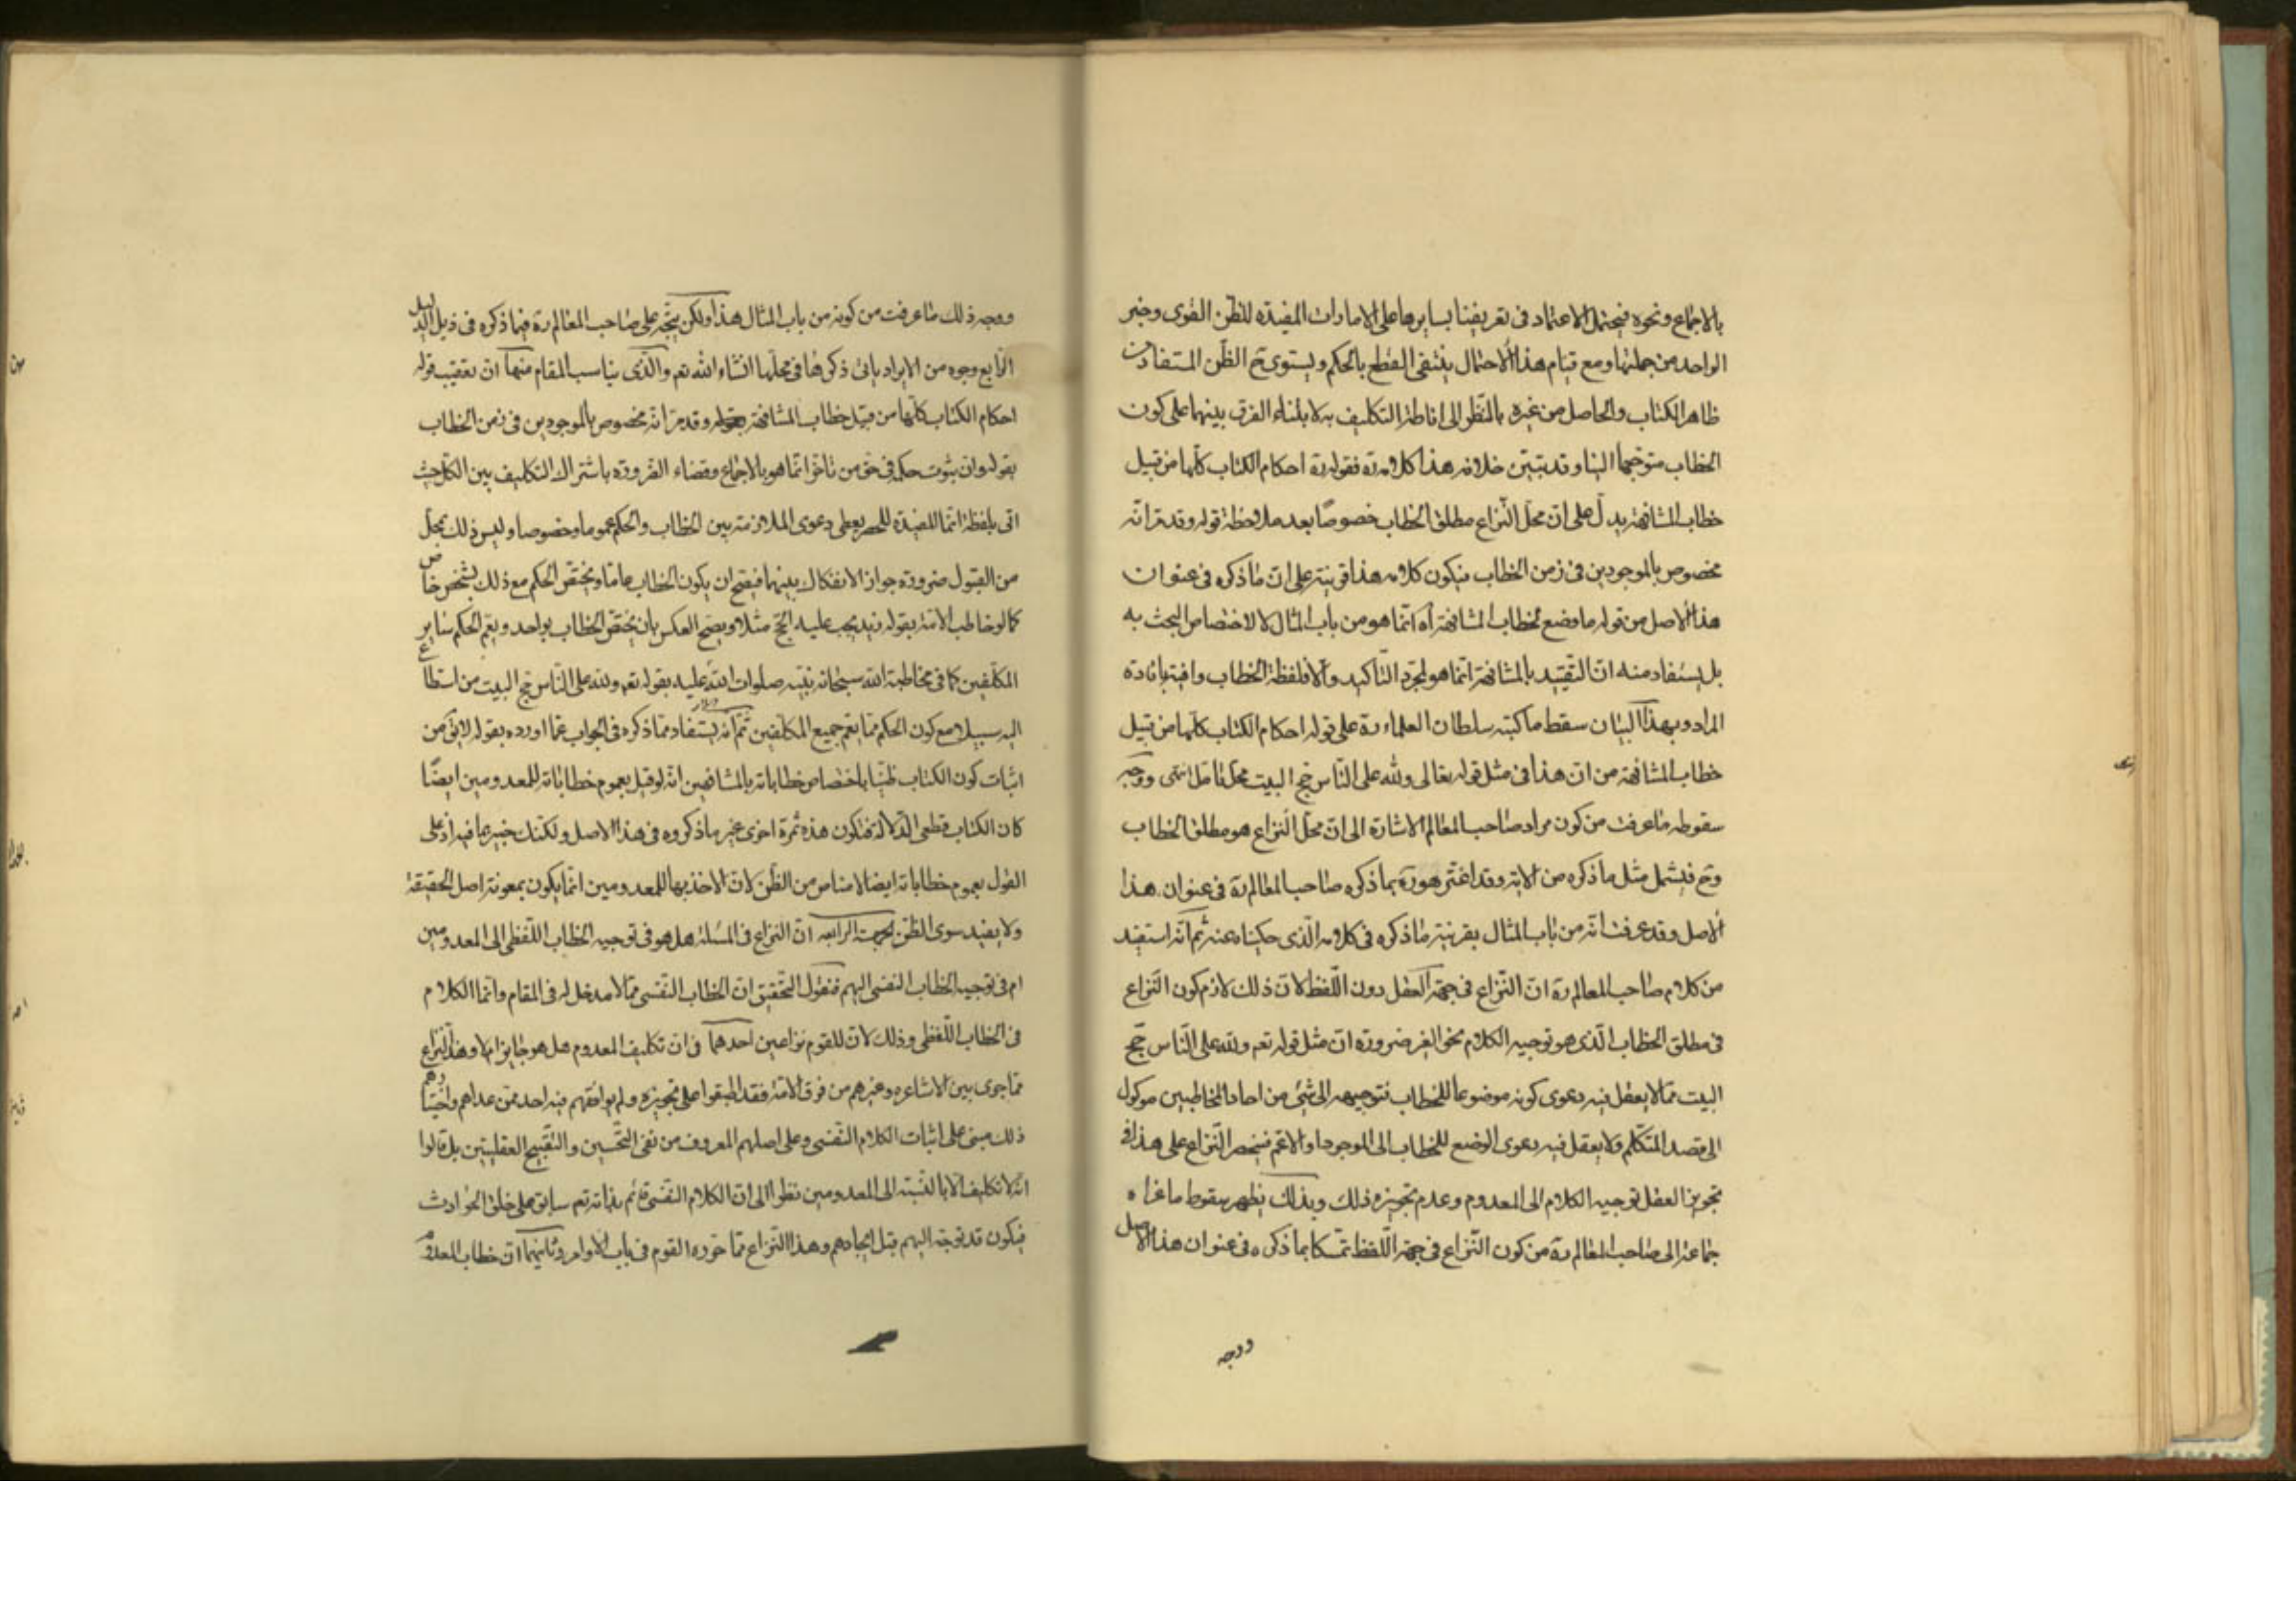 بالاجماع ونحوه فيحتمل الاعتماد فى تعريفنا بسايرها على الامارات المفيدة للظن القوى وخبر
الواحد من جملتها ومع قيام هذا الاحتمال ينتفى القطع بالحكم ويستوى ح الظن المستفاد من
ظاهر الكتاب والحاصل من غيره بالنظر الى اناطة التكليف به لابتناء الفرق بينهما على كون
الخطاب متوجها الينا وقد تبين خلافه هذا كلامه ره فقوله ره احكام الكتاب كلها من قبيل
خطاب المشافهة يدل على ان محل النزاع مطلق الخطاب خصوصا بعد ملاحظة قوله وقد مر انه
مخصوص بالموجودين فى زمن الخطاب فيكون كلامه هذا قرينة على ان ما ذكره فى عنوان
هذا الاصل من قوله ما وضع لخطاب المشافهة اه انما هو من باب المثال لا لاختصاص البحث به
بل يستفاد منه ان التقييد بالمشافهة انما هو لمجرد التاكيد والا فلفظة الخطاب وافية بافادة
المراد وبهذا البيان سقط ما كتبه سلطان العلماء ره على قوله احكام الكتاب كلها من قبيل
خطاب المشافهة من ان هذا فى مثل قوله تعالى ولله على الناس حج البيت محل تامل انتهى ووجه
سقوطه ما عرفت من كون مراد صاحب المعالم الاشارة الى ان محل النزاع هو مطلق الخطاب
وح فيشمل مثل ما ذكره من الاية وقد اغتر هو ره بما ذكره صاحب المعالم ره فى عنوان هذا
الاصل وقد عرفت انه من باب المثال بقرينة ما ذكره فى كلامه الذى حكيناه عنه ثم انه استفيد
من كلام صاحب المعالم ره ان النزاع فى جهة العقل دون اللفظ لان ذلك لازم كون النزاع
فى مطلق الخطاب الذى هو توجيه الكلام نحو الغير ضرورة ان مثل قوله تعم ولله على الناس حج
البيت مما لا يعقل فيه دعوى كونه موضوعا للخطاب فتوجيهه الى شئ من احاد المخاطبين موكول
الى قصد المتكلم ولا يعقل فيه دعوى الوضع للخطاب الى الموجود او الاعم فينحصر النزاع على هذا فى
تجويز العقل توجيه الكلام الى المعدوم وعدم تجويزه ذلك وبذلك يظهر سقوط ما عزاه
جماعة الى صاحب المعالم ره من كون النزاع فى جهة اللفظ تمسكا بما ذكره فى عنوان هذا الاصل
ووجه
ووجه ذلك ما عرفت من كونه من باب المثال هذا ولكن يتجه على صاحب المعالم ره فيما ذكره فى ذيل الدليل
الرابع وجوه من الايراد ياتى ذكرها فى محلها انشاء الله تعم والذى يناسب المقام منها ان تعقيب قوله
احكام الكتاب كلها من قبيل خطاب المشافهة وقد مر انه مخصوص بالموجودين فى زمن الخطاب
بقوله وان ثبوت حكمه فى حق من تاخر انما هو بالاجماع وقضاء الضرورة باشتراك التكليف بين الكل حيث
اتى بلفظة انما المفيدة للحصر يعطى دعوى الملازمة بين الخطاب والحكم عموما وخصوصا وليس ذلك بمحل
من القبول ضرورة جواز الانفكاك بينهما فيصح ان يكون الخطاب عاما ويختص الحكم مع ذلك بشخص خاص
كما لو خاطب الامة بقوله زيد يجب عليه الحج مثلا ويصح العكس بان يختص الخطاب بواحد ويعم الحكم ساير
المكلفين كما فى مخاطبة الله سبحانه نبيه صلوات الله عليه بقوله تعم ولله على الناس حج البيت من استطاع
اليه سبيلا مع كون الحكم مما يعم جميع المكلفين ثم انه يستفاد مما ذكره فى الجواب عما اورده بقوله لا يق من
اثبات كون الكتاب ظنيا باختصاص خطاباته بالمشافهين انه لو قيل بعموم خطاباته للمعدومين ايضا
كان الكتاب قطعى الدلالة فتكون هذه ثمرة اخرى غير ما ذكروه فى هذا الاصل ولكنك خبير بما فيه اذ على
القول بعموم خطاباته ايضا لا مناص من الظن لان الاخذ بها للمعدومين انما يكون بمعونة اصل الحقيقة
ولا يفيد سوى الظن الجهة الرابعة ان النزاع فى المسئلة هل هو فى توجيه الخطاب اللفظى الى المعدومين
ام فى توجيه الخطاب النفسى اليهم فنقول التحقيق ان الخطاب النفسى مما لا مدخل له فى المقام وانما الكلام
فى الخطاب اللفظى وذلك لان للقوم نزاعين احدهما فى ان تكليف المعدوم هل هو جايز ام لا وهذا النزاع
مما جرى بين الاشاعرة وغيرهم من فرق الامة فقد اطبقوا على تجويزه ولم يوافقهم فيه احد ممن عداهم واختيارهم
ذلك مبنى على اثبات الكلام النفسى وعلى اصلهم المعروف من نفى التحسين والتقبيح العقليتين بل قالوا
انه لا تكليف الا بالنسبة الى المعدومين نظرا الى ان الكلام النفسى قائم بذاته تعم سابق على خلق الحوادث
فيكون قد توجه اليهم قبل ايجادهم وهذا النزاع مما حرره القوم فى باب الاوامر وثانيهما ان خطاب المعدوم